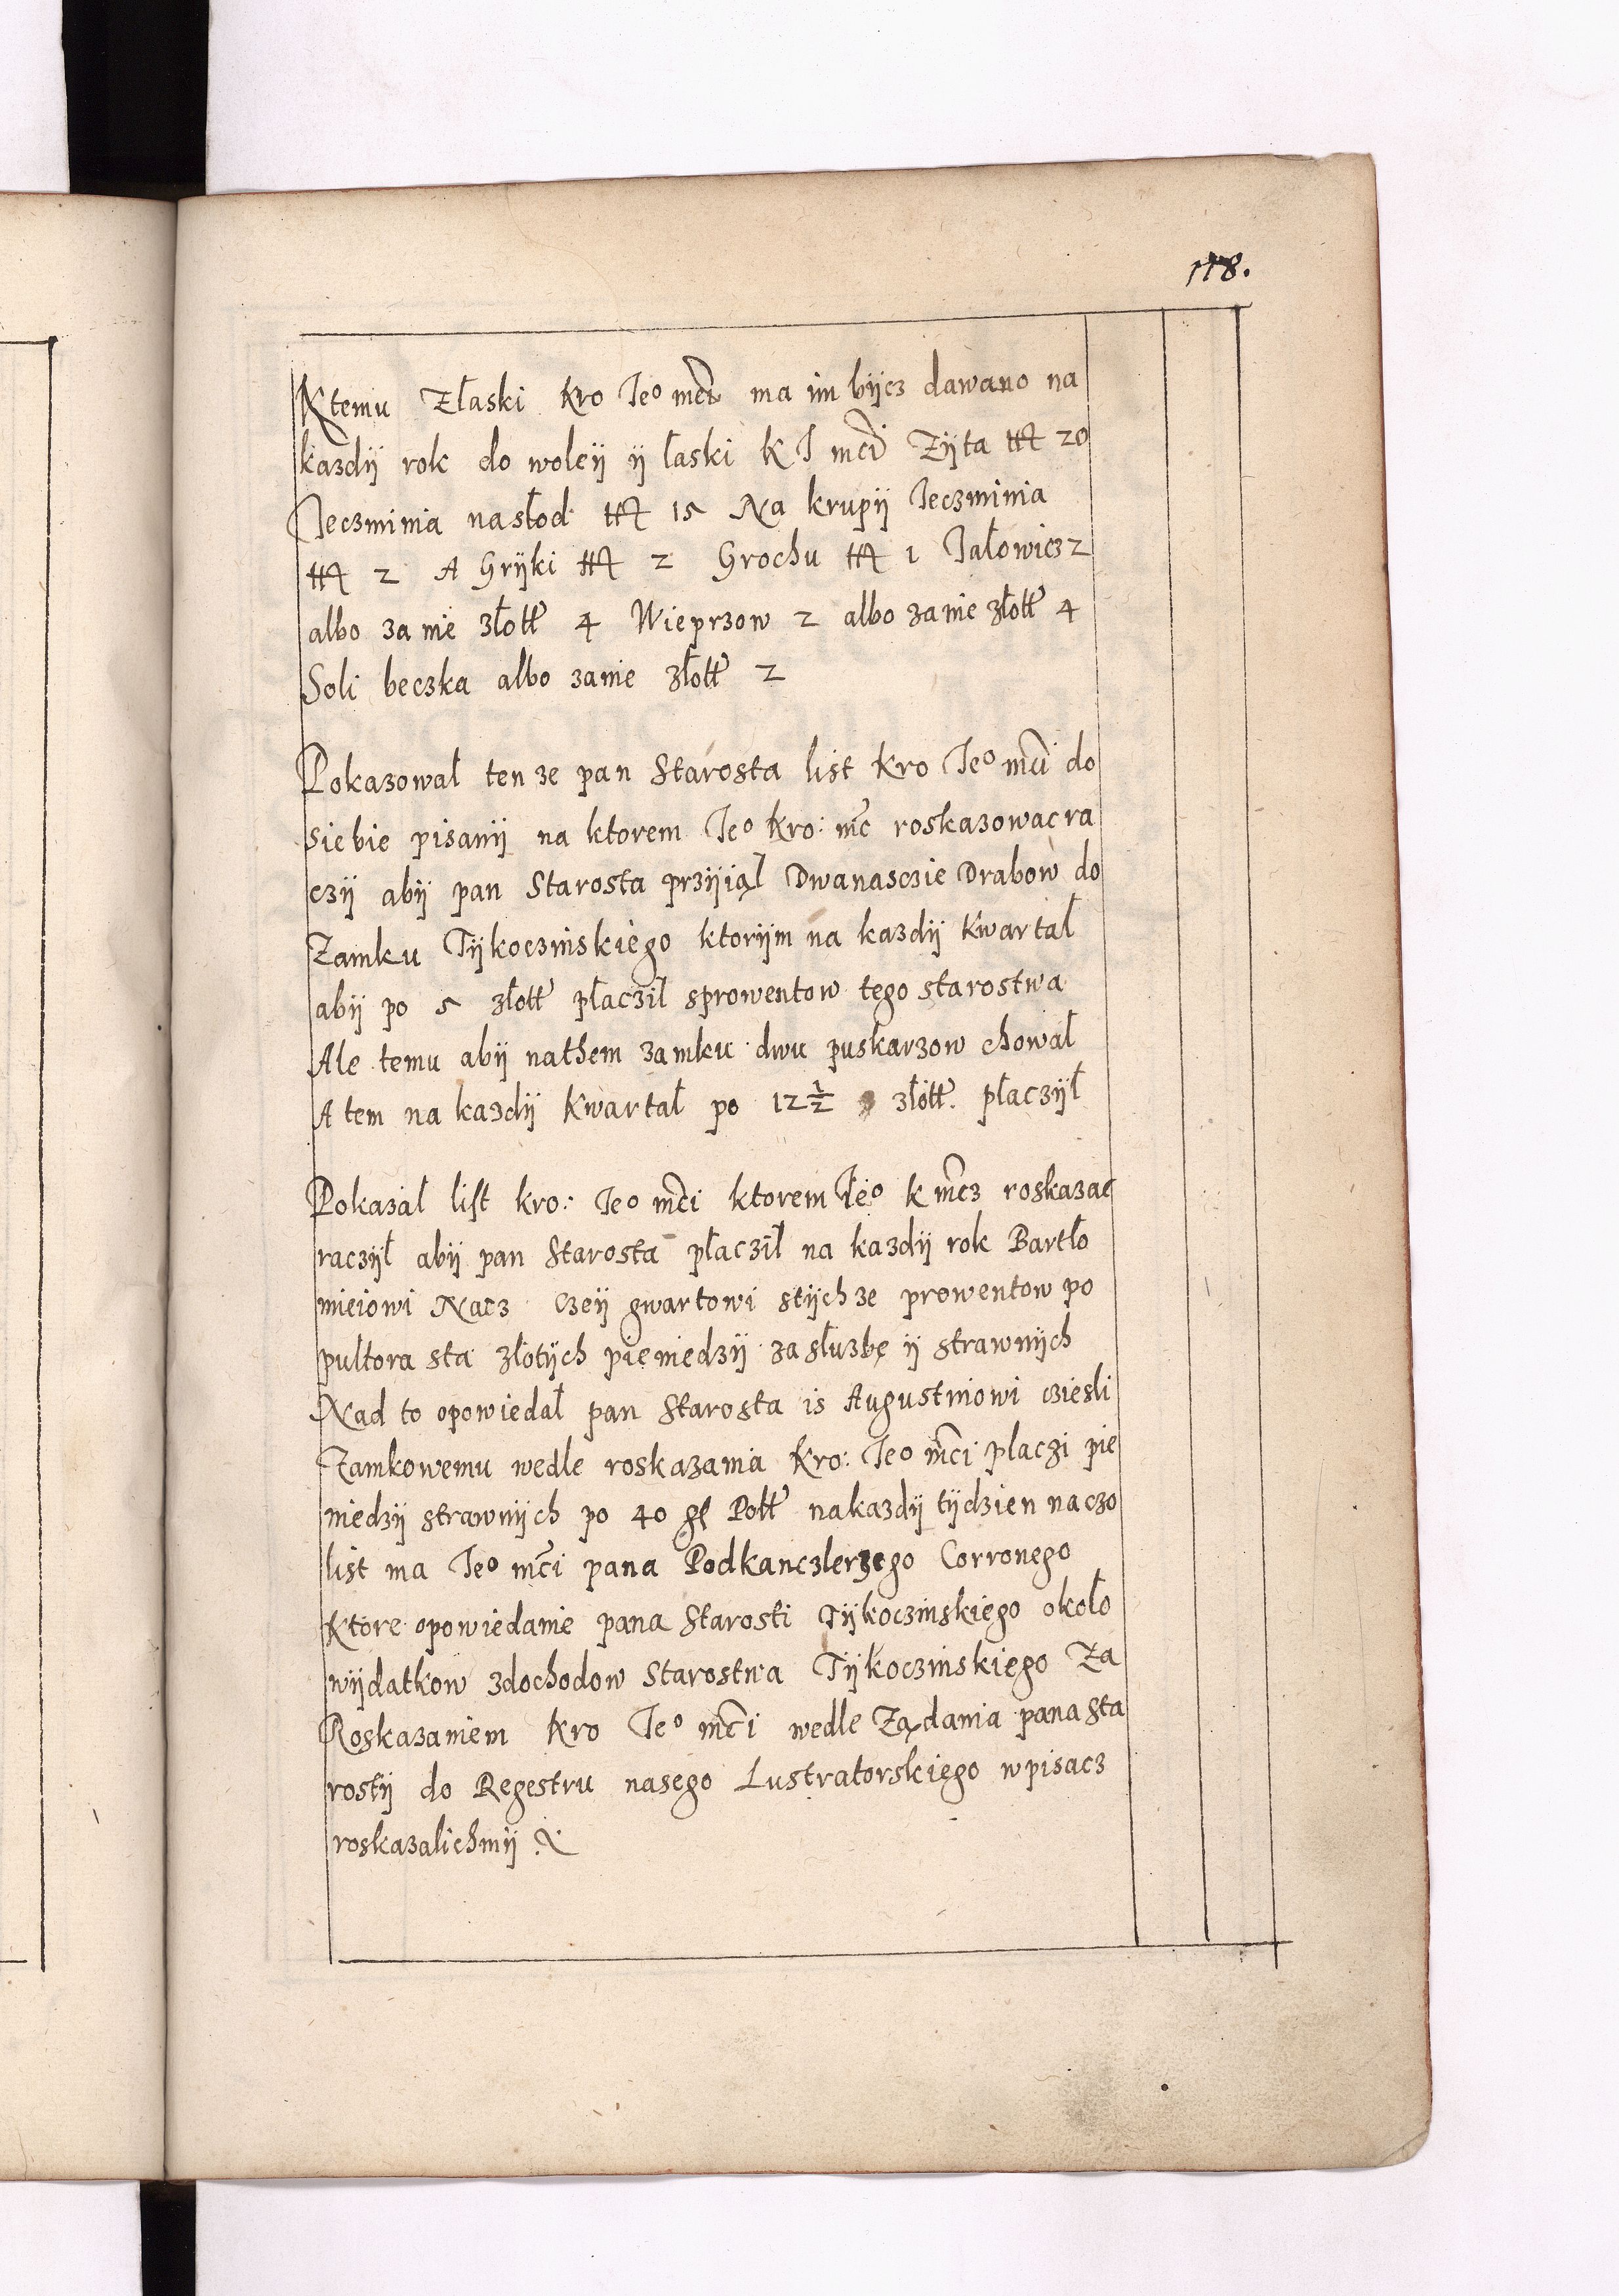 118.
Ktemu Złaski Kro Jeo mci ma im bijcz dawano na
kazdij rok do woleij ij łaski K J mci Zijta 20
Jeczminia nasłod 15 Na krupij Jeczminia
2 A Grijki 2 Grochu 1 Jałowicz 2
albo za nie złott 4 Wieprzow 2 albo zanie złott 4
Soli beczka albo zanie złott 2
Pokazował ten ze pan Starosta list Kro Jeo mci do
siebie pisanij na ktorem Jeo Kro: mc roskazowac ra
czij abij pan Starosta przijiął Dwanasczie Drabow do
Zamku Tijkoczinskiego ktorijm na kazdij Kwartał
abij po 5 złott płacził sprowentow tego starostwa
Ale temu abij nathem zamku dwu puskarzow chował
A tem na kazdij Kwartał po 12 1/2 złott. płaczijł
Pokazał list kro: Jeo mci ktorem Jeo k mcz roskazac
raczijł abij pan Starosta płacził na kazdij rok Bartło
mieiowi Nacz czeij gwartowi stijch ze prowentow po
pułtora sta złotijch pieniedzij za słuzbę ij strawnijch
Nad to opowiedał pan Starosta is Augustinowi cziesli
Zamkowemu wedle roskazania Kro: Jeo mci płaczi pie
niedzij strawnijch po 40 gł Poltt nakazdij tijdzien naczo
list ma Jeo mci pana Podkanczlerzego Corronego
Ktore opowiedanie pana Starosti Tijkoczinskiego około
wijdatkow zdochodow Starostwa Tijkoczinskiego Za
Roskazaniem Kro Jeo mci wedle Ządania pana sta
rostij do Regestru nasego Lustratorskiego wpisacz
roskazalichmij